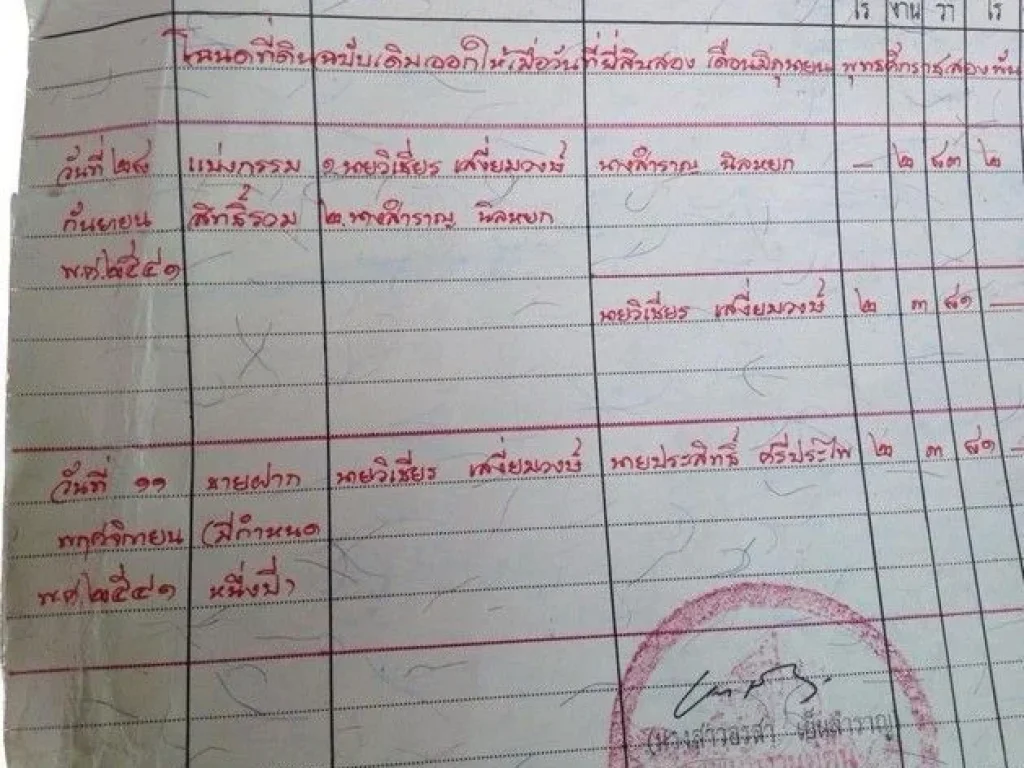 ไร่ งาน วา ไร่
โฉนดที่ดินฉบับเดิมออกให้เมื่อวันที่ยี่สิบสอง เดือนมิถุนายน พุทธศักราชสองพัน
วันที่ ๒๘ แบ่งกรรม ๑.นายวิเชียร เสงี่ยมวงษ์ นางสำราญ นิลหยก — ๒ ๘๓ ๒
กันยายน สิทธิ์รวม ๒.นางสำราญ นิลหยก
พ.ศ.๒๕๔๑
นายวิเชียร เสงี่ยมวงษ์ ๒ ๓ ๘๑ —
วันที่ ๑๑ ขายฝาก นายวิเชียร เสงี่ยมวงษ์ นายประสิทธิ์ ศรีประไพ ๒ ๓ ๘๑ —
พฤศจิกายน (มีกำหนด
พ.ศ.๒๕๔๑ หนึ่งปี)
(นางสาวอรสา เย็นสำราญ)